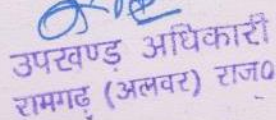 उपखण्ड़ अधिकारी
रामगढ़ (अलवर) राज०